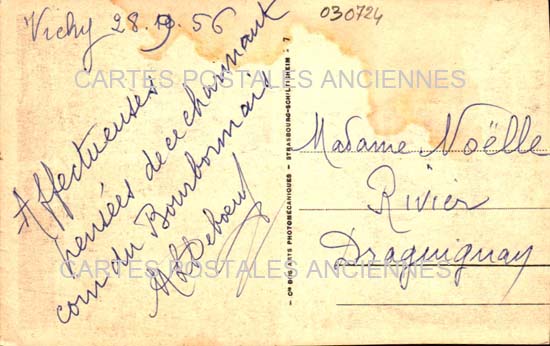 Vichy 28.9.56
Affectueuses
pensées de ce charmant
coin du Bourbonnais
030724
CARTES POSTALES ANCIENNES
CARTES POSTALES ANCIENNES
Cie DES ARTS PHOTOMÉCANIQUES - STRASBOURG-SCHILTIGHEIM - 7
Madame Noëlle
Rivier
Draguignan